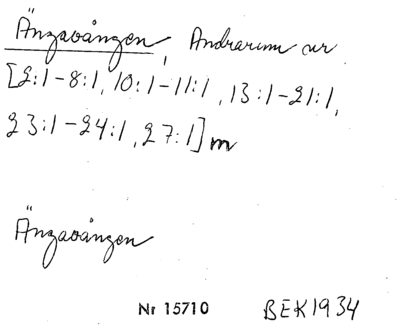 Ängavången, Andrarum ur
[2:1-8:1, 10:1-11:1, 13:1-21:1,
23:1-24:1, 27:1] m
Ängavången
Nr 15710 BEK 1934